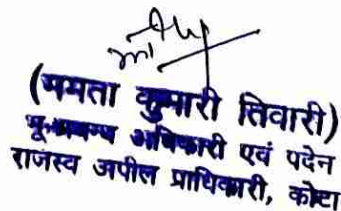 (ममता कुमारी तिवारी)
भू.प्रबन्ध अधिकारी एवं पदेन
राजस्व अपील प्राधिकारी, कोटा